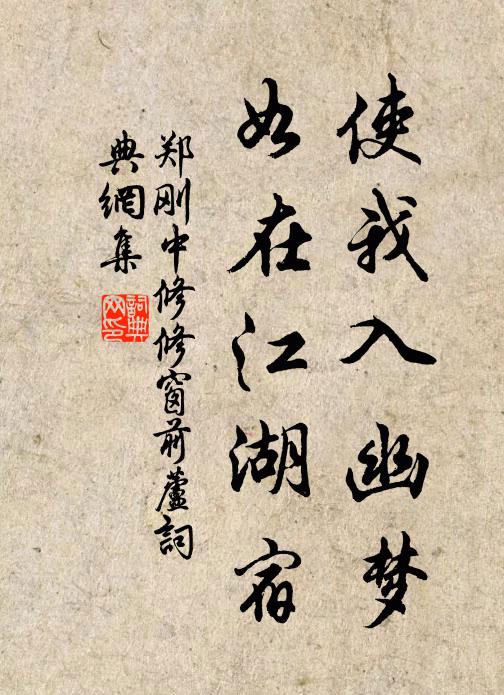 使我入幽梦
如在江湖宿
郑刚中修修窗前蘆詞
典網集
詞典网印